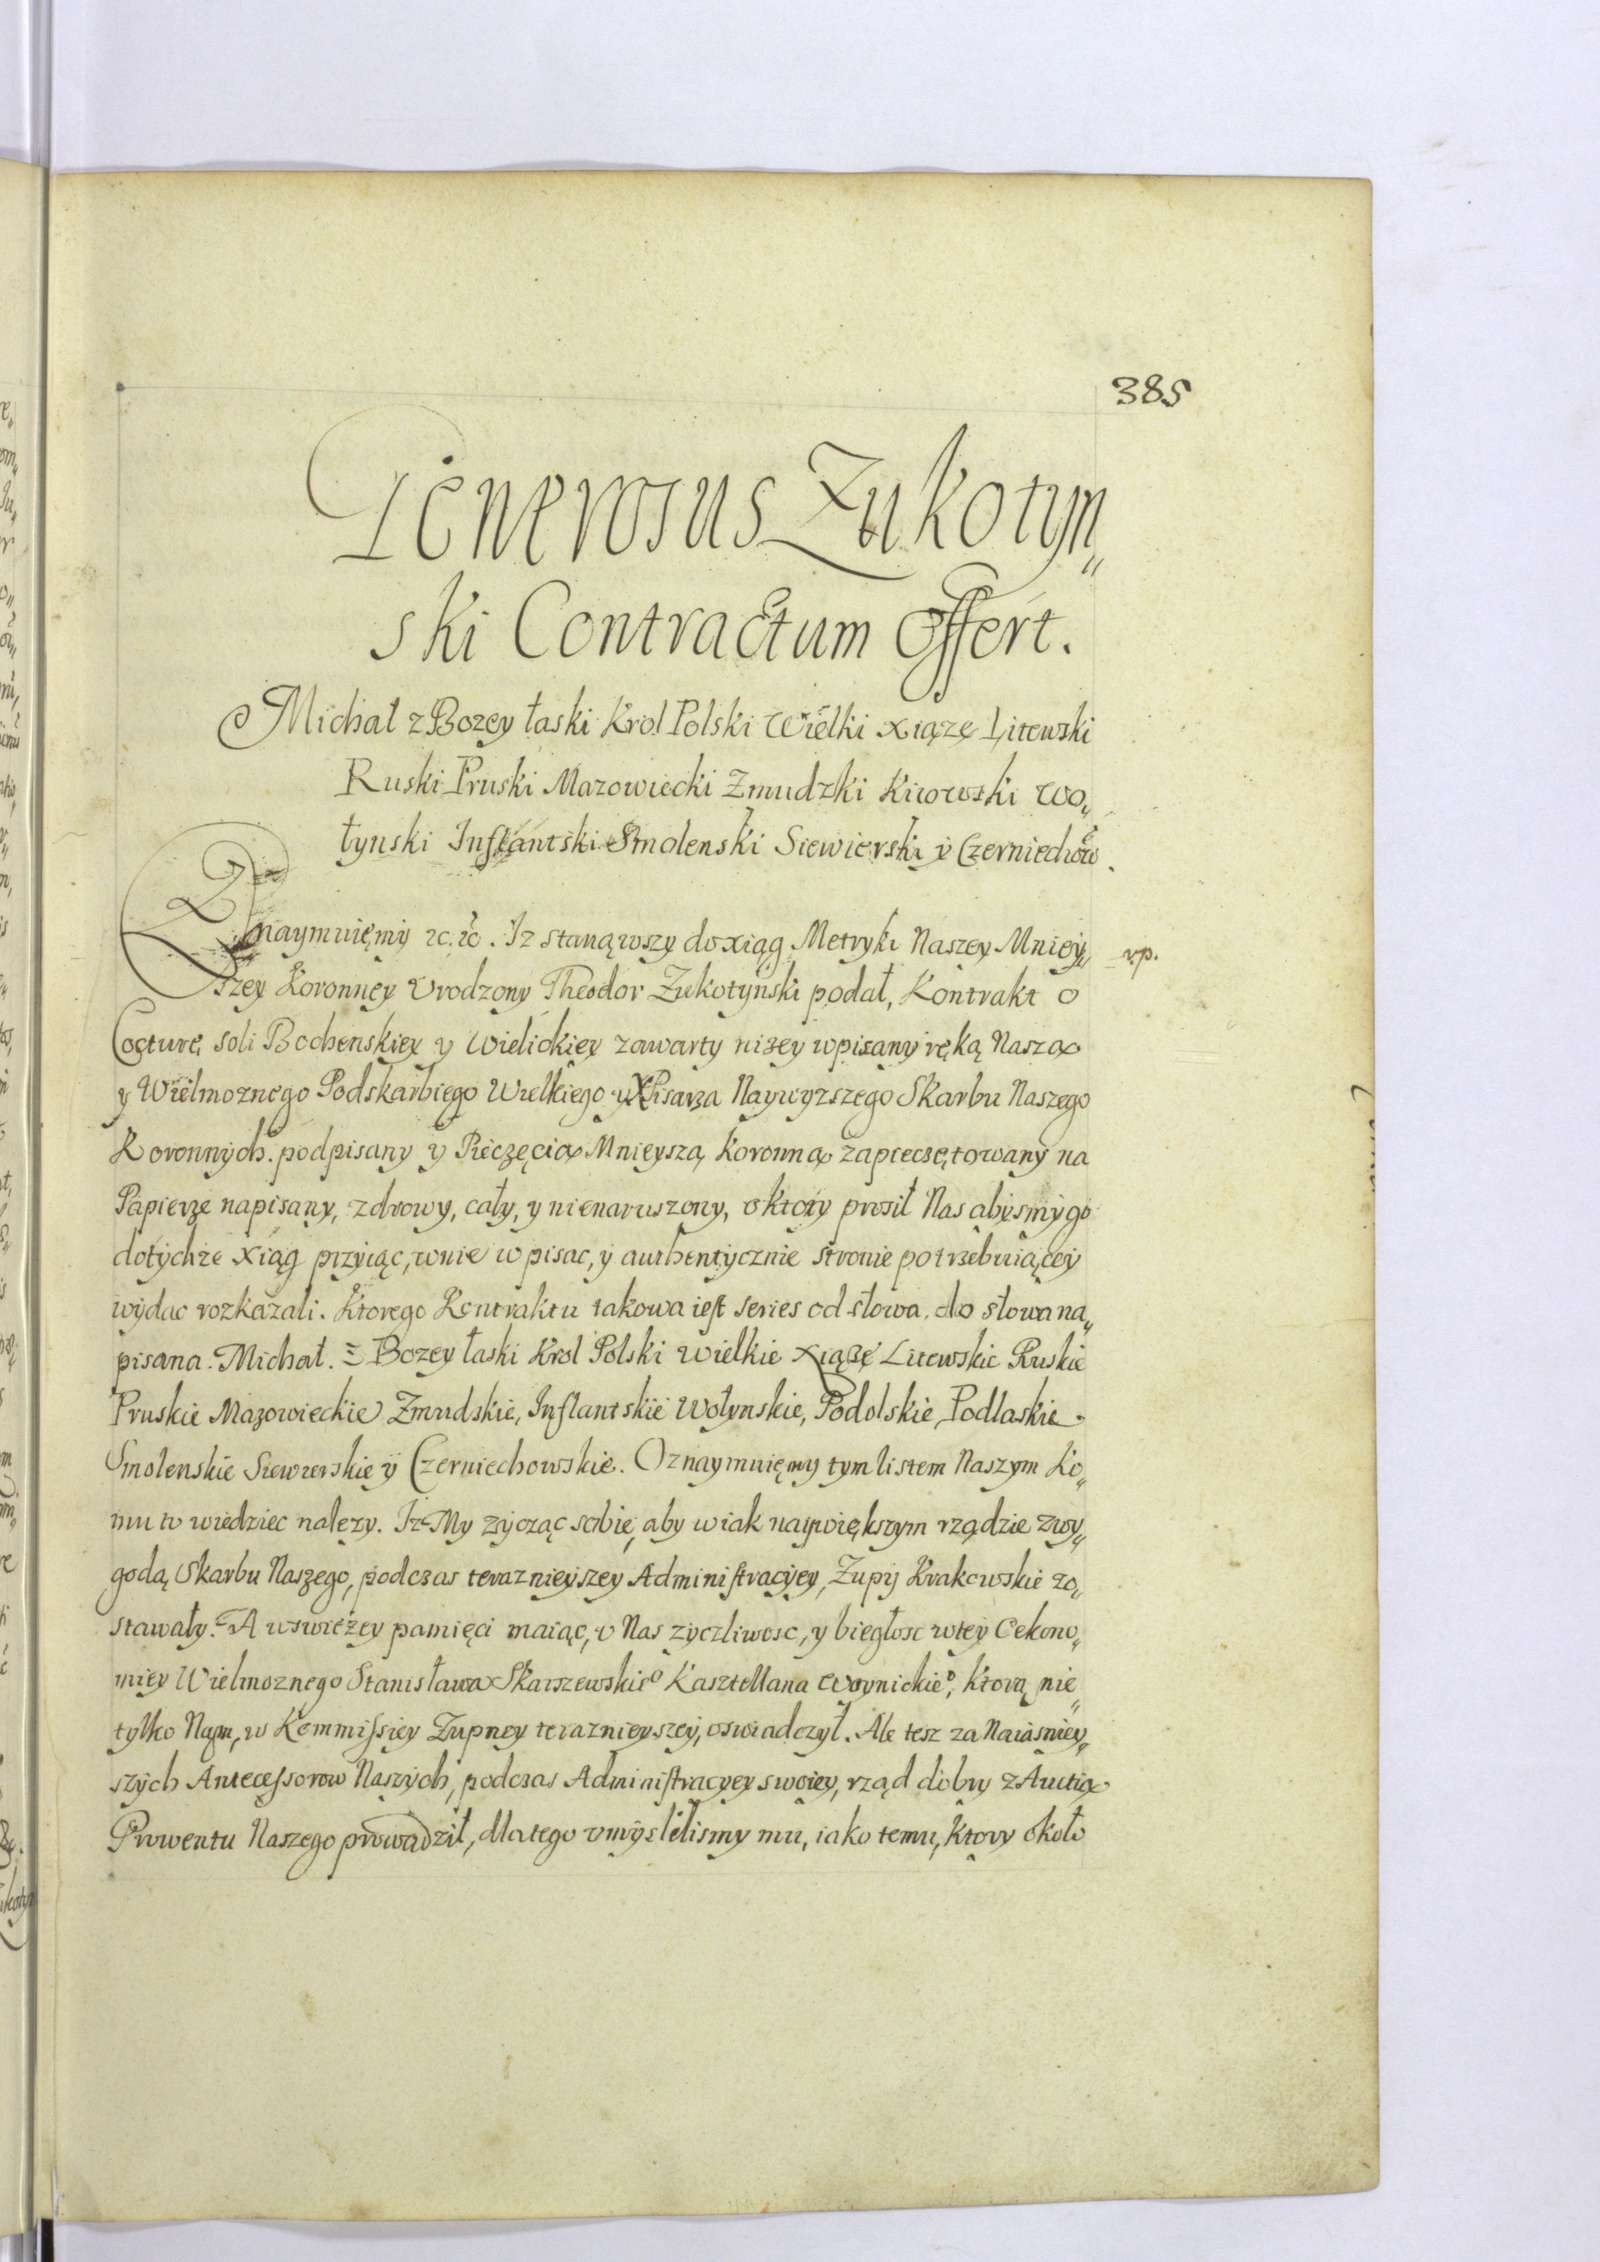 385
Generosus Zukotyn„
ski Contractum offert.
Michał z Bozey łaski Krol Polski Wielki Xiąze Litewski
Ruski Pruski Mazowiecki Zmudzki Kiiowski Wo„
łynski Inflantski Smolenski Siewierski y Czerniechow.
Oznaymuięmy etc. etc. Iz stanąwszy do xiąg Metryki Naszey Mniey„ rp.
szey Koronney Vrodzony Theodor Zukotyński podał, Kontrakt o
Cocturę soli Bochenskiey y Wielickiey zawarty nizey wpisany ręką Naszą
y Wielmoznego Podskarbiego Wielkiego y Pisarza Naywyzszego Skarbu Naszego
Koronnych. podpisany y Pieczęcią Mnieyszą Koronną zapieczętowany na
Papierze napisany, zdrowy, cały, y nienaruszony, o ktory prosił Nas abysmy go
dotychze Xiąg przyiąc, wnie wpisac, y authentycznie stronie potrzebuiącey
wydac rozkazali. Ktorego Kontraktu takowa iest series od słowa do słowa na„
pisana. Michał. z Bozey łaski Krol Polski Wielkie Xiąże Litewskie Ruskie
Pruskie Mazowieckie Zmudzkie, Inflantskie Wołynskie, Podolskie, Podlaskie
Smolenskie Siewierskie y Czerniechowskie. Oznaymuięmy tym listem Naszym Ko„
mu to wiedziec nalezy. Iz My zycząc sobie, aby w iak naywiększym rządzie zwy„
godą Skarbu Naszego, podczas teraznieyszey Administracyey, Zupy Krakowskie zo„
stawały. A w swiezey pamięci maiąc, v Nas zyczliwosc, y biegłosc w tey Oekono„
miey Wielmoznego Stanisława Skarszewskieo Kasztellana Woynickieo, Ktorą nie„
tylko Nam, w Kommissiey Zupney teraznieyszey, oswiadczył. Ale tesz za Naiasniey„
szych Antecessorow Naszych, podczas Administracyey swoiey, rząd dobry z Auctią
Prowentu Naszego prowadził, dlatego vmyslilismy mu, iako temu, Ktory około